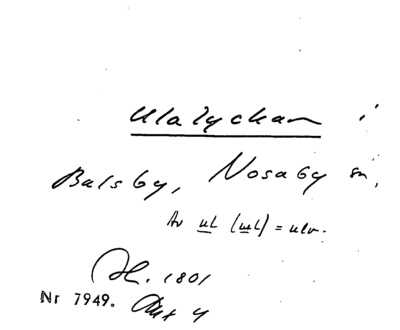 Ulalyckan i
Balsby, Nosaby sn,
Av ul (ul) = ulv.
1801
Nr 7949. Akt 4